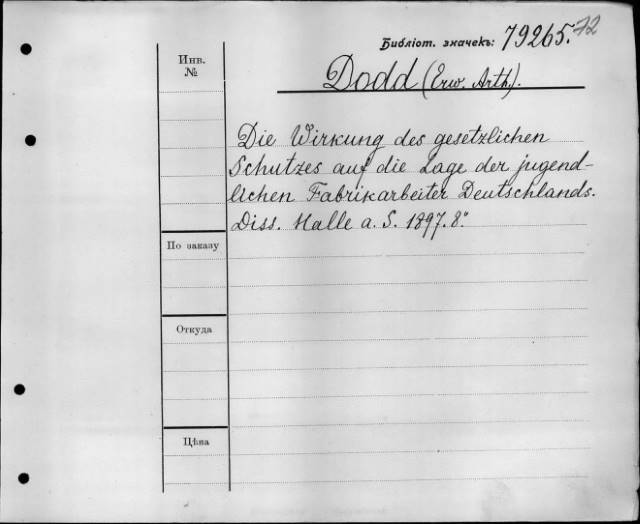 Библіот. значекъ: 79265.72
Инв. №
Dodd (Erw. Arth.).
Die Wirkung des gesetzlichen
Schutzes auf die Lage der jugend-
lichen Fabrikarbeiter Deutschlands.
Diss. Halle a. S. 1897. 8°.
По заказу
Откуда
Цѣна